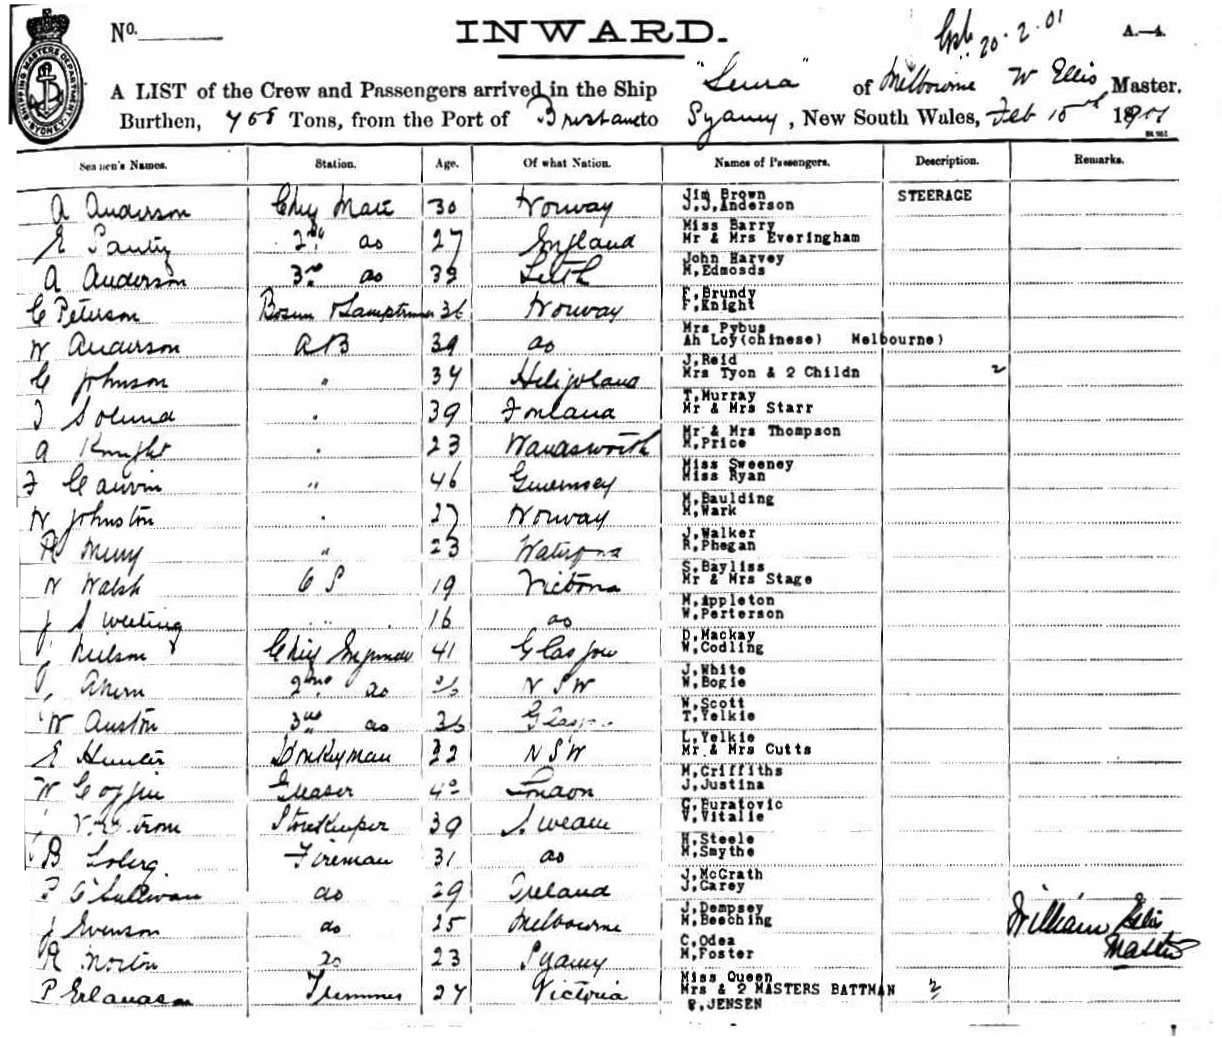 No.
INWARD.
20.2.01
A.—4.
A LIST of the Crew and Passengers arrived in the Ship of Melbourne W Ellis Master.
Burthen, Tons, from the Port of Brisbane to Sydney, New South Wales, Feb
SHIPPING MASTERS DEPARTMENT SYDNEY
Seamen's Names. Station. Age. Of what Nation. Names of Passengers. Description. Remarks.
Jim Brown STEERAGE
A Anderson Chief Mate 30 Norway J.J.Anderson
Miss Barry
E 2nd do 27 England Mr & Mrs Everingham
John Harvey
A Anderson 3rd do Leith M.Edmosds
E.Brundy
C Peterson Bosun & Lamptrimmer 36 Norway F.Knight
Mrs Pybus
W Anderson AB 39 do Ah Loy(chinese) Melbourne)
J.Reid
C Johnson " 34 Heligoland Mrs Tyon & 2 Childn 2
T.Murray
39 Mr & Mrs Starr
Mr & Mrs Thompson
A Knight 23 Wandsworth M.Price
Miss Sweeney
" 46 Guernsey Miss Ryan
M.Baulding
W Johnston 27 Norway M.Wark
J.Walker
" 23 R.Phegan
S.Bayliss
W Walsh O S 19 Victoria Mr & Mrs Stage
M.Appleton
J Sweeting 16 do W.Perterson
D.Mackay
Neilson Chief Engineer 41 Glasgow W.Codling
J.White
Ahern 2nd do N S W W.Bogie
W.Scott
W Auston 3rd do Glasgow T.Yelkie
L.Yelkie
E Hunter Donkeyman N S W Mr & Mrs Cutts
M.Criffiths
W Greaser 40 London J.Justina
C.Euratovic
Storekeeper 39 Sweden V.Vitalie
H.Steele
B Fireman 31 do M.Smythe
J.McGrath
P O'Sullivan do 29 Ireland J.Carey
J.Dempsey
J Evenson do 25 Melbourne M.Beeching William Ellis
C.Odea Master
R Morton do 23 Sydney M.Foster
Miss Queen
P Trimmer 24 Victoria Mrs & 2 MASTERS BATTMAN 2
JENSEN